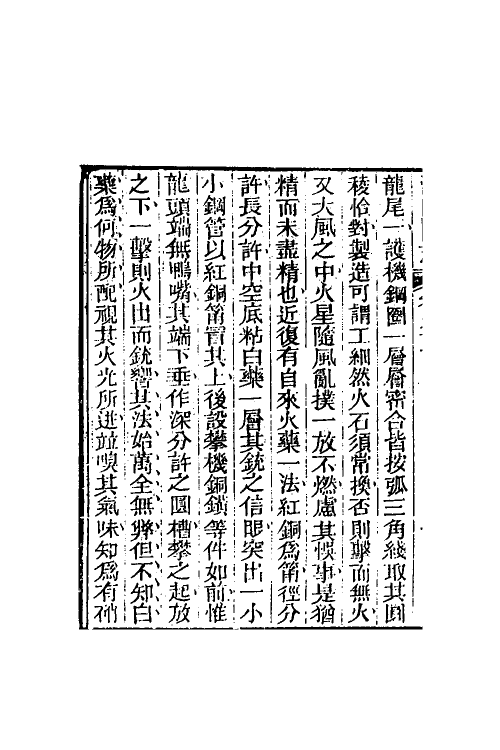 龍尾一護機鋼圈一層層密合皆按弧三角綫取其圓
稜恰對製造可謂工細然火石須常換否則擊而無火
又大風之中火星隨風亂撲一放不燃慮其悞事是猶
精而未盡精也近復有自來火藥一法紅銅爲筩徑分
許長分許中空底粘白藥一層其銃之信眼突出一小
小鋼管以紅銅筩冒其上後設攀機銅鎖等件如前惟
龍頭端無鴨嘴其端下垂作深分許之圓槽攀之起放
之下一擊則火出而銃響其法始萬全無弊但不知白
藥爲何物所配視其火光所迸並嗅其氣味知爲有硝